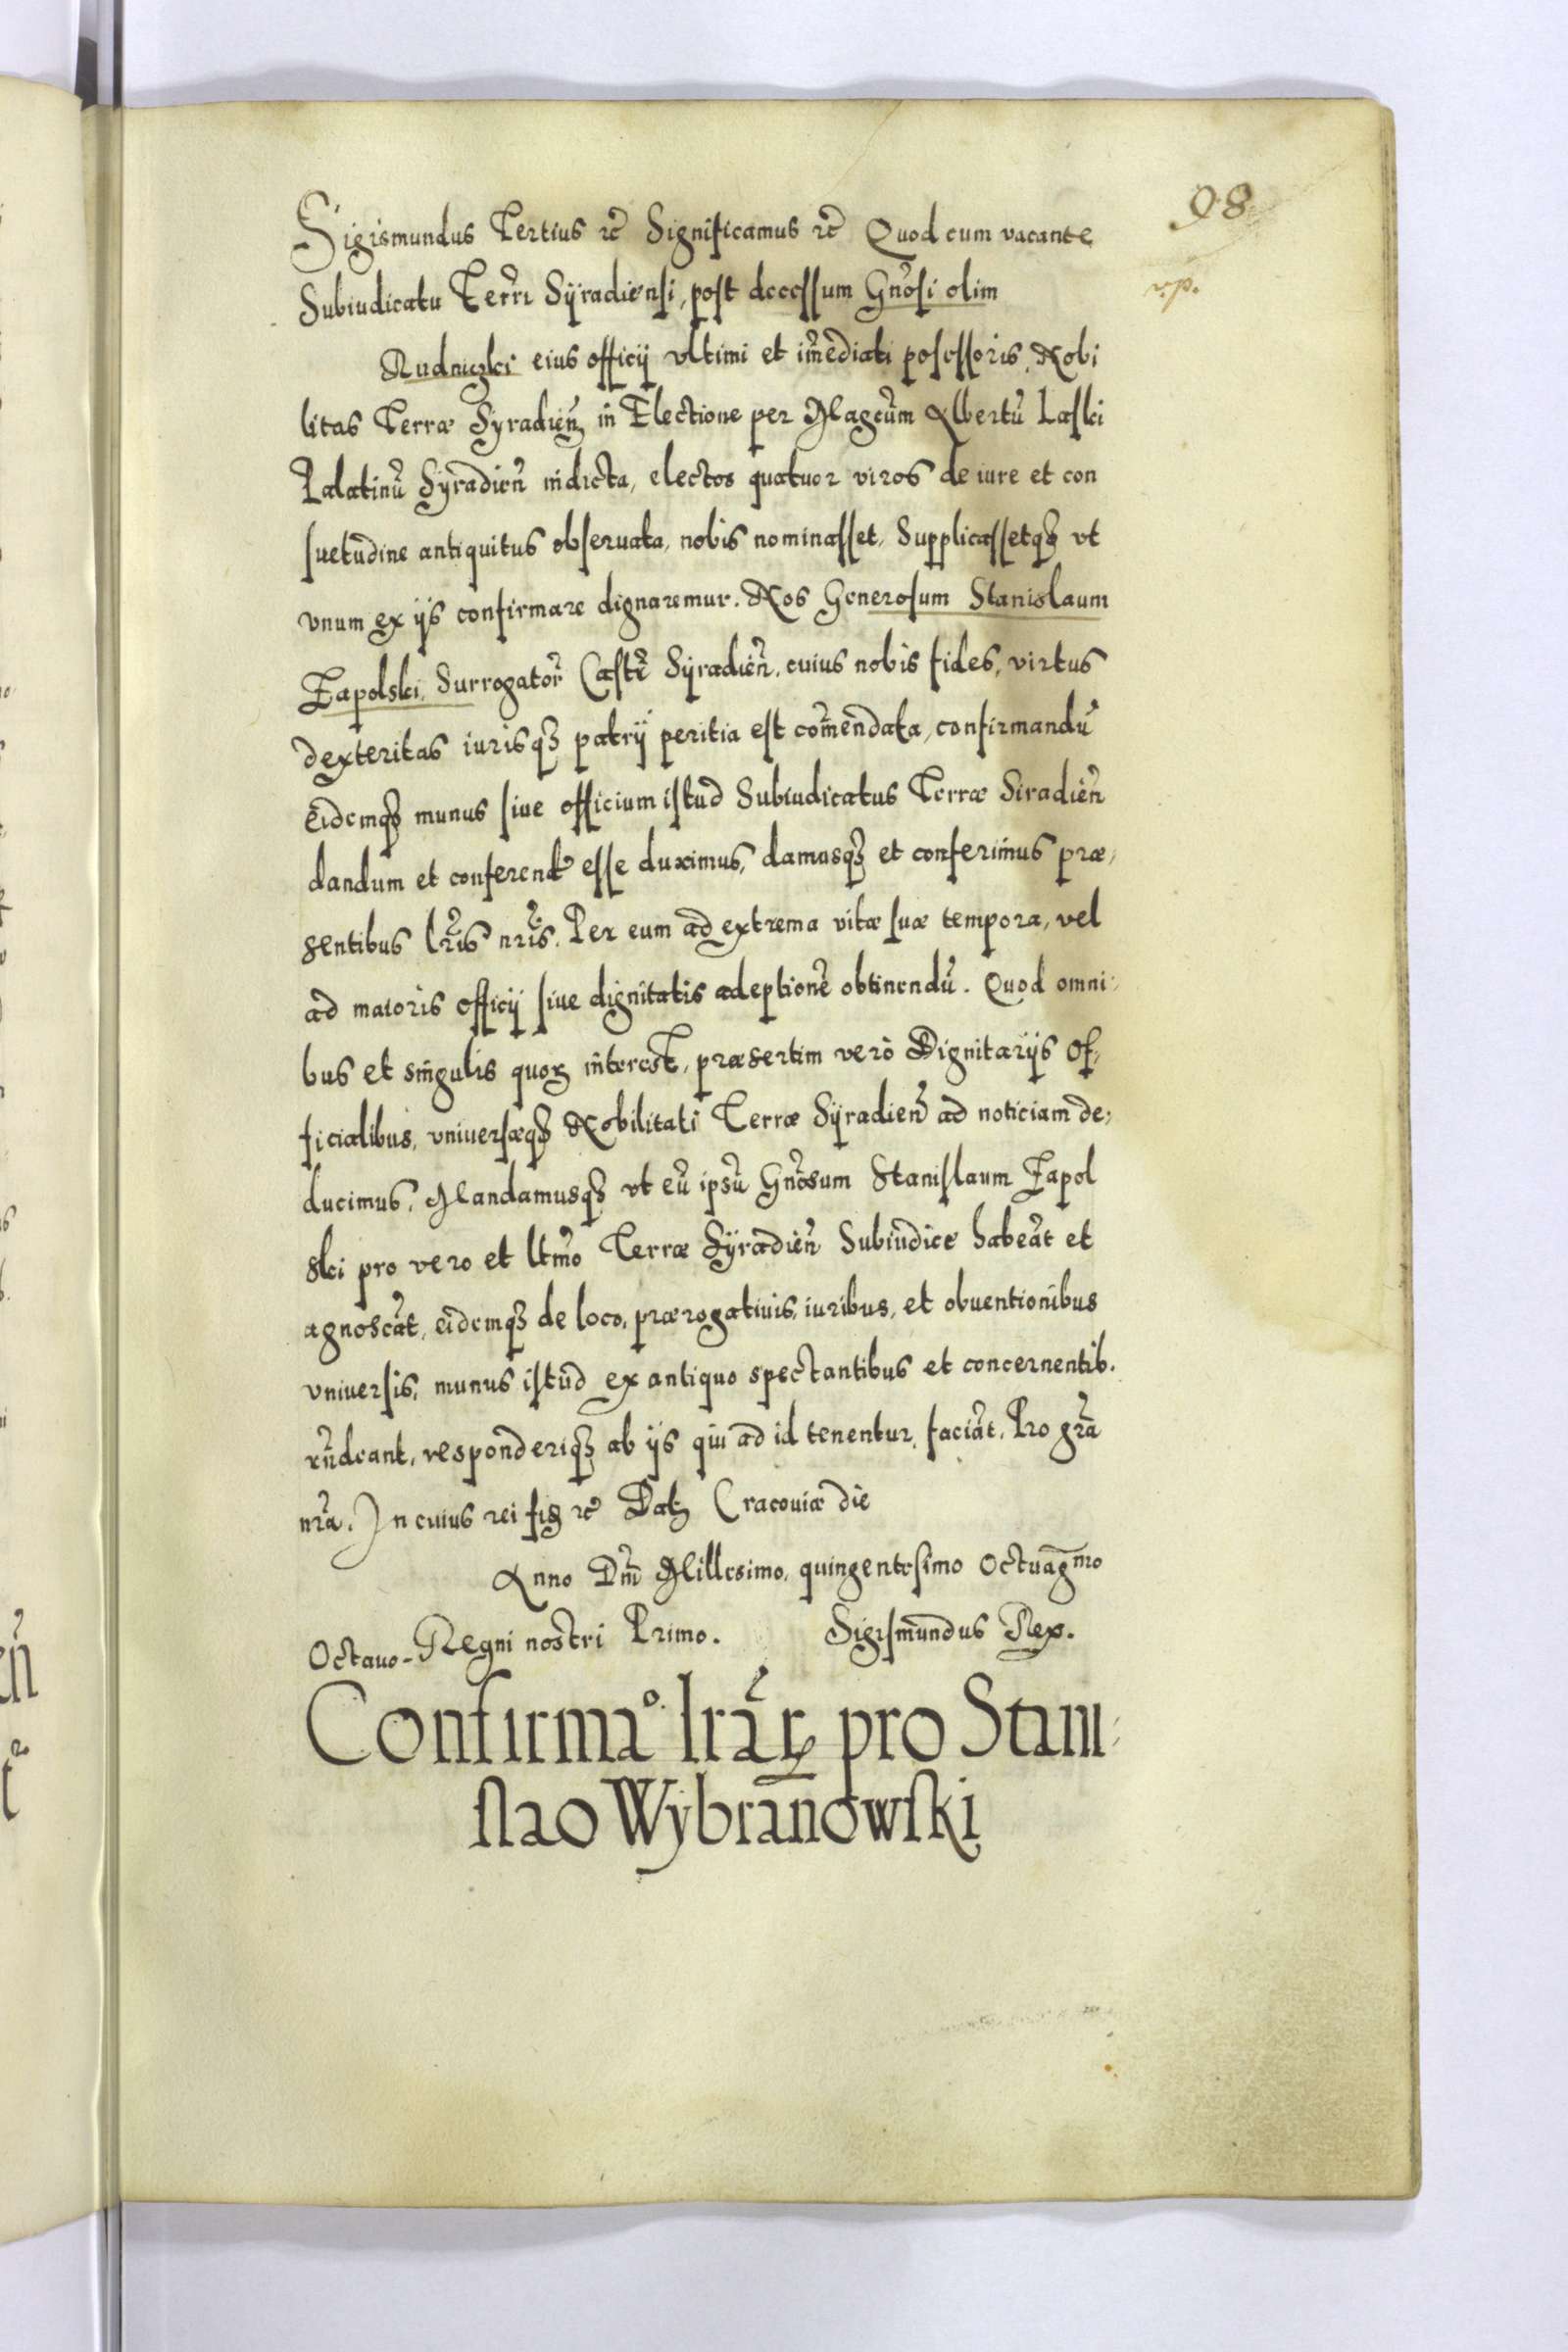 98
v.p.
Sigismundus Tertius rc̄ Significamus rc̄ Quod cum vacante
Subiudicatu Terrῑ Sÿradiensi, post decessum Gn̄osi olim
Rudniczki eius officij vltimi et im̄ediati posessoris, Nobi
litas Terræ Syradieñ in Electione per Magcūm Albertū Laski
Palatinū Syradieñ indicta, electos quatuor viros de iure et con
suetudine antiquitus obseruata, nobis nominasset, Supplicassetqꝫ vt
vnum ex ijs confirmare dignaremur. Nos Generosum Stanislaum
Zapolski, Surrogator̄ Castr̄ Sÿradieñ, cuius nobis fides, virtus
dexteritas iurisqꝫ patrij peritia est com̄endata, confirmandū
Eidemqꝫ munus siue officium istud Subiudicatus Terræ Siradieñ
dandum et conferend̄ esse duximus, damusqꝫ et conferimus præ,
sentibus lr̄is nr̄is. Per eum ad extrema vitæ suæ tempora, vel
ad maioris officij siue dignitatis adeptionē obtinendū. Quod omni,
bus et singulis quoꝝ interest, præsertim verò Dignitarijs Of,
ficialibus, vniuersæqꝫ Nobilitati Terræ Sÿradieñ ad noticiam de,
ducimus, Mandamusqꝫ vt eū ipsū Gn̄osum Stanislaum Zapol
ski pro vero et ltm̄o Terræ Sÿradieñ Subiudice habeāt et
agnoscāt, eidemqꝫ de loco, prærogatiuis, iuribus, et obuentionibus
vniuersis, munus istud ex antiquo spectantibus et concernentib.
rn̄deant, responderiqꝫ ab ijs qui ad id tenentur, faciāt. Pro gr̄a
nr̄a. In cuius rei fiꝫ rc̄ Datꝫ Cracouiæ die
Anno Dm̄ Millesimo, quingentesimo Octuag̅mo
Octauo. Regni nostri Primo. Sigismundus Rex.
Confirmaº lrāꝝ pro Stani,
slao Wybranowski